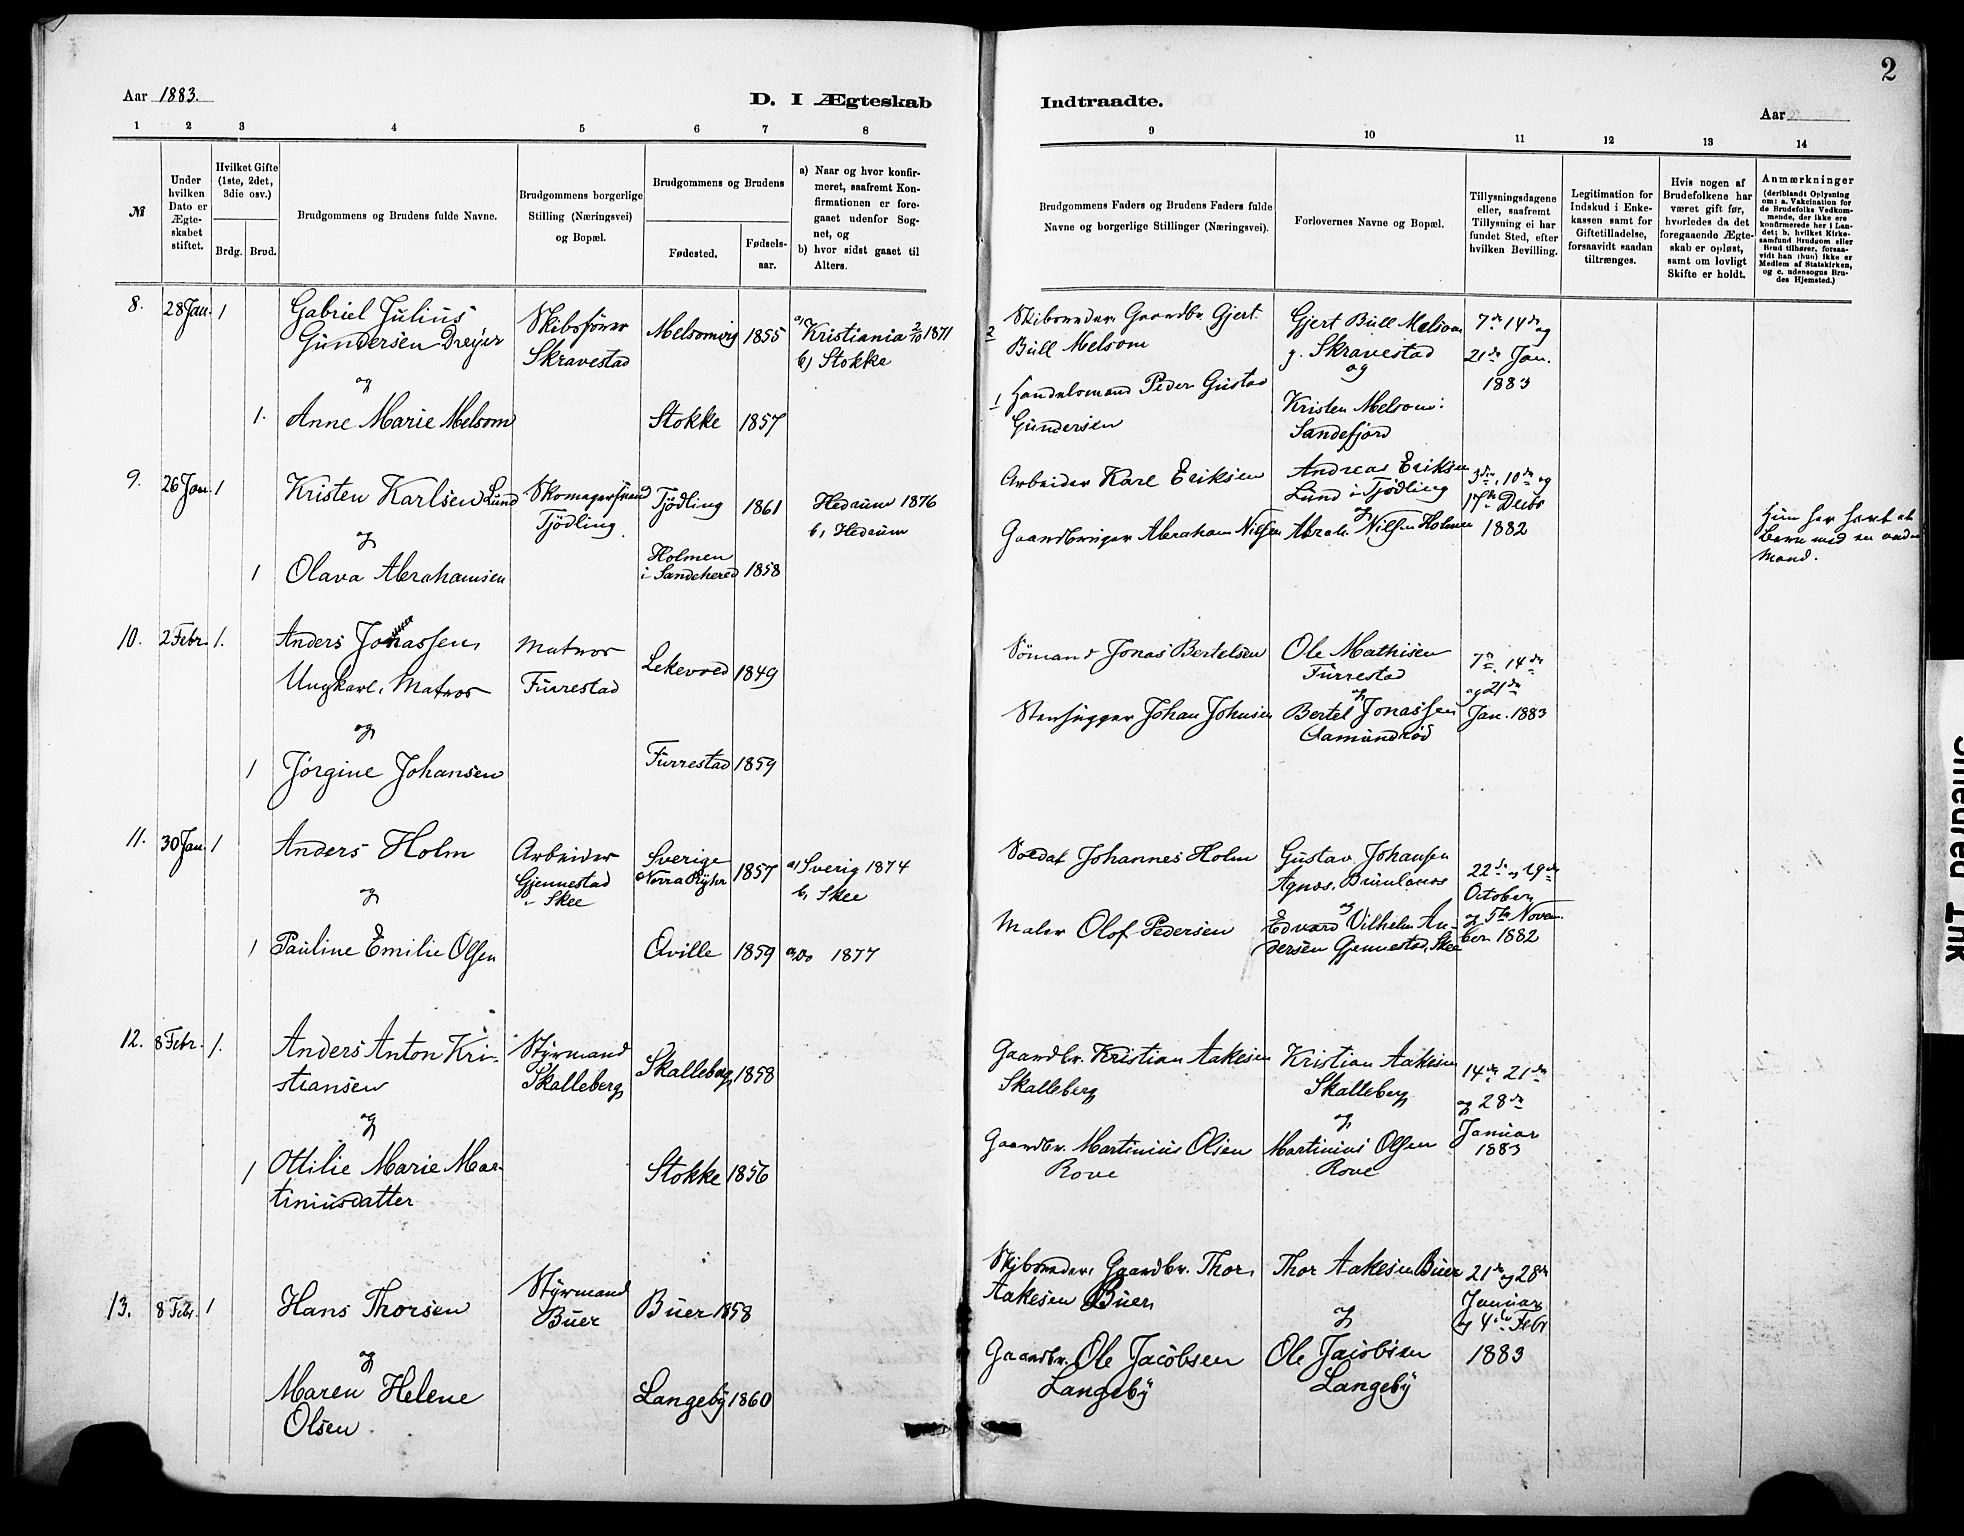 Aar 1883.
D. I Ægteskab
1 2 3 4 5 6 7 8
№
Under hvilken Dato er Ægteskabet stiftet.
Hvilket Gifte (1ste, 2det, 3die osv.)
Brdg. Brud.
Brudgommens og Brudens fulde Navne.
Brudgommens borgerlige Stilling (Næringsvei) og Bopæl.
Brudgommens og Brudens
Fødested. Fødsels-aar.
a) Naar og hvor konfirmeret, saafremt Konfirmationen er foregaaet udenfor Sognet, og
b) hvor sidst gaaet til Alters.
8. 28 Jan. 1 Gabriel Julius Skibsfører Melsomvig 1855 a) Kristiania 2/10 1871
Gundersen Dreyer Skravestad b) Stokke
og
1. Anne Marie Melsom Stokke 1857
9. 26 Jan. 1 Kristen Karlsen Lund Skomagersvend Tjödling 1861 Hedrum 1876
Tjödling b, Hedrum
og
1 Olava Abrahamsen Holmen i Sandeherred 1858
10. 2 Febr. 1. Anders Jonassen Matros Lekevold 1849
Ungkarl, Matros Furrestad
og
1 Jørgine Johansen Furrestad 1859
11. 30 Jan. 1 Anders Holm Arbeider Sverige 1857 a) Sverig 1874
Gjennestad i Skee b, Skee
og
1 Pauline Emilie Olsen Qville 1859 a, Do 1877
12. 8 Febr. 1. Anders Anton Kri- Styrmand Skalleberg 1858
stiansen Skalleberg
og
1 Ottilie Marie Mar- Stokke 1856
tiniusdatter
13. 8 Febr. 1 Hans Thorsen Styrmand Buer 1858
Buer
og
Maren Helene Langeby 1860
Olsen
2
Indtraadte.
Aar
9 10 11 12 13 14
Brudgommens Faders og Brudens Faders fulde Navne og borgerlige Stillinger (Næringsvei).
Forlovernes Navne og Bopæl.
Tillysningsdagene eller, saafremt Tillysning ei har fundet Sted, efter hvilken Bevilling.
Legitimation for Indskud i Enkekassen samt for Giftetilladelse, forsaavidt saadan tiltrænges.
Hvis nogen af Brudefolkene har været gift før, hvorledes da det foregaaende Ægteskab er opløst, samt om lovligt Skifte er holdt.
Anmærkninger
(deriblandt Oplysning om: a. Vakcination for de Brudefolks Vedkommende, der ikke ere konfirmerede her i Landet; b. hvilket Kirkesamfund Brudgom eller Brud tilhører, forsaavidt han (hun) ikke er Medlem af Statskirken, og c. udensogns Brudes Hjemsted.)
2 Skibsreder Gaardbr. Gjert Gjert Bull Melsom 7de 14de og
Bull Melsom g. Skravestad 21de Jan.
og 1883
1 Handelsmand Peder Gustav Kristen Melsom:
Gundersen Sandefjord
Arbeider Karl Eriksen Andreas Eriksen 3die, 10de og
Lund i Tjödling 17de Decbr
og
Gaardbruger Abraham Nilsen Abrah. Nilsen Holmen 1882
Hun har havt et
Barn med en anden
Mand.
Sömand Jonas Bertelsen Ole Mathisen 7de. 14de
Furrestad og 21de
og
Stenhugger Johan Johnsen Bertel Jonassen Jan. 1883
Aamundrød
Soldat Johannes Holm Gustav Johansen 22de og 29de
Agnæs, Brunlanæs October
og og 5te Novem-
Maler Olof Pedersen Edvard Vilhelm An- ber 1882
dersen Gjennestad, Skee
Gaardbr. Kristian Aakesen Kristian Aakesen 14de 21de
Skalleberg Skalleberg og 28de
og Januar
Gaardbr. Martinius Olsen Martinius Olsen 1883
Rove Rove
Skibsreder, Gaardbr. Thor Thor Aakesen Buer 21de og 28de
Aakesen Buer Januar
og og 4de Febr
Gaardbr. Ole Jacobsen Ole Jacobsen 1883
Langeby Langeby